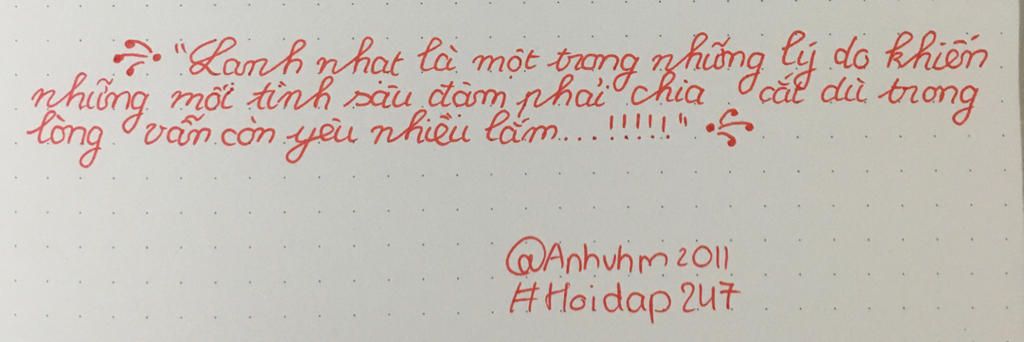 "Lanh nhat là một trong những lý do khiến
những mối tình sâu đậm phải chia cắt dù trong
lòng vẫn còn yêu nhiều lắm...!!!!!"
@Anhvhm2011
#Hoidap247